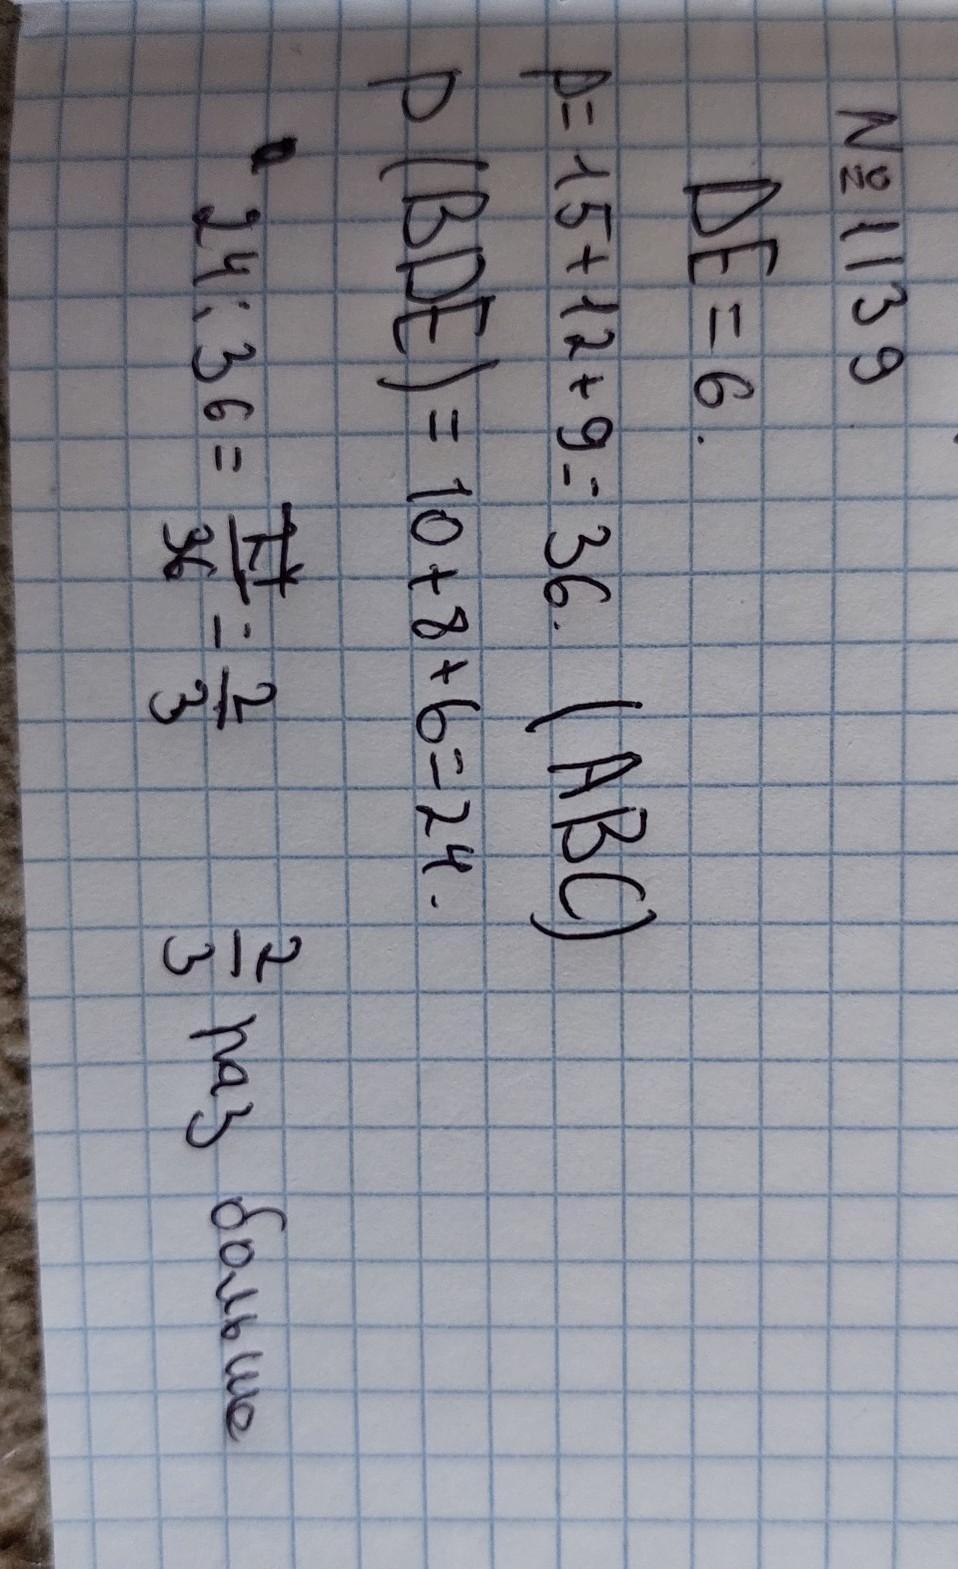 №1139
DE = 6.
p = 15 + 12 + 9 = 36. (ABC)
P (BDE) = 10 + 8 + 6 = 24.
24 : 36 = 24/36 = 2/3 2/3 раз больше